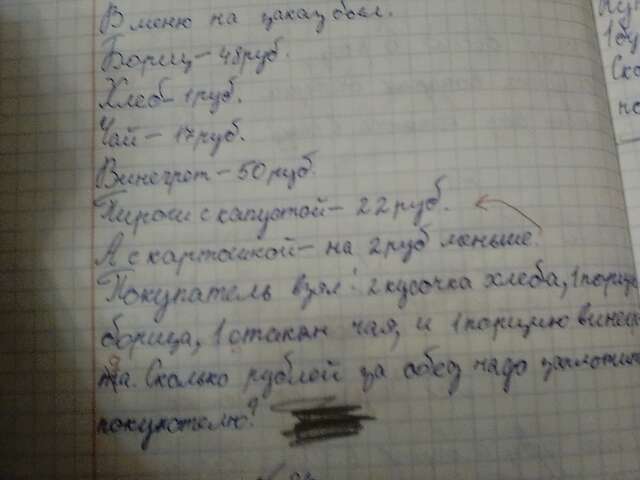 В меню на заказ был.
Борщ – 48 руб.
Хлеб – 1 руб.
Чай – 17 руб.
Винегрет – 50 руб.
Пироги с капустой – 22 руб.
А с картошкой – на 2 руб меньше.
Покупатель взял: 2 кусочка хлеба, 1 порц
борща, 1 стакан чая, и 1 порцию винег
та. Сколько рублей за обед надо заплотит
покупотелю?